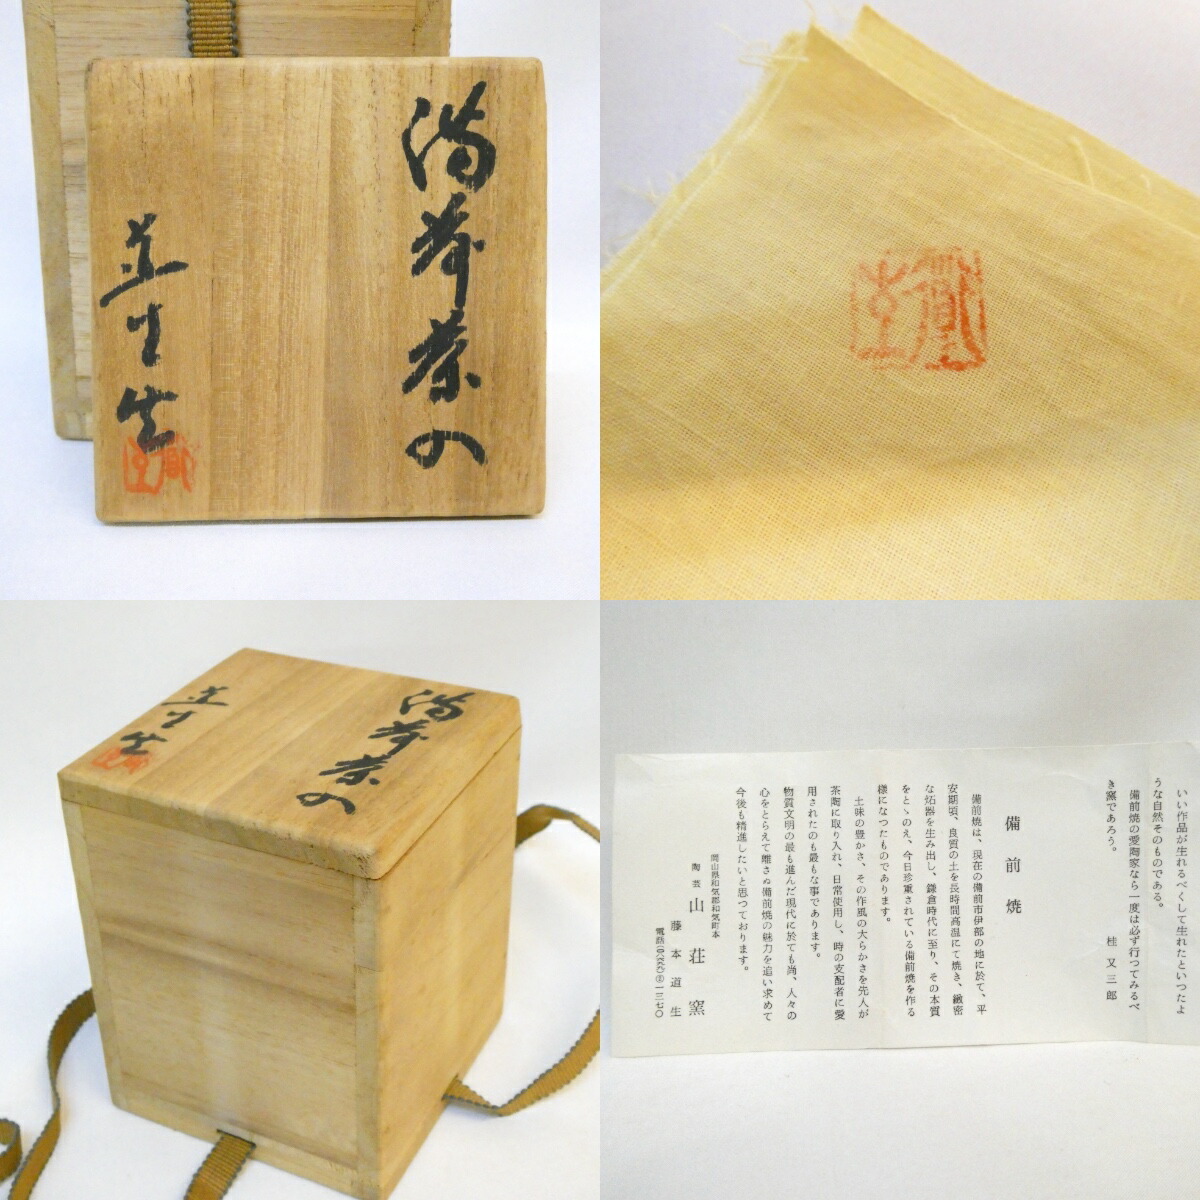 備前茶の
道生
備前茶の
道生
いい作品が生れるべくして生れたといつたよ
うな自然そのものである。
備前焼の愛陶家なら一度は必ず行つてみるべ
き窯であろう。
桂又三郎
備前焼
備前焼は、現在の備前市伊部の地に於て、平
安期頃、良質の土を長時間高温にて焼き、緻密
な炻器を生み出し、鎌倉時代に至り、その本質
をとゝのえ、今日珍重されている備前焼を作る
様になつたものであります。
土味の豊かさ、その作風の大らかさを先人が
茶陶に取り入れ、日常使用し、時の支配者に愛
用されたのも最もな事であります。
物質文明の最も進んだ現代に於ても尚、人々の
心をとらえて離さぬ備前焼の魅力を追い求めて
今後も精進したいと思つております。
岡山県和気郡和気町本
陶芸 山荘窯
藤本道生